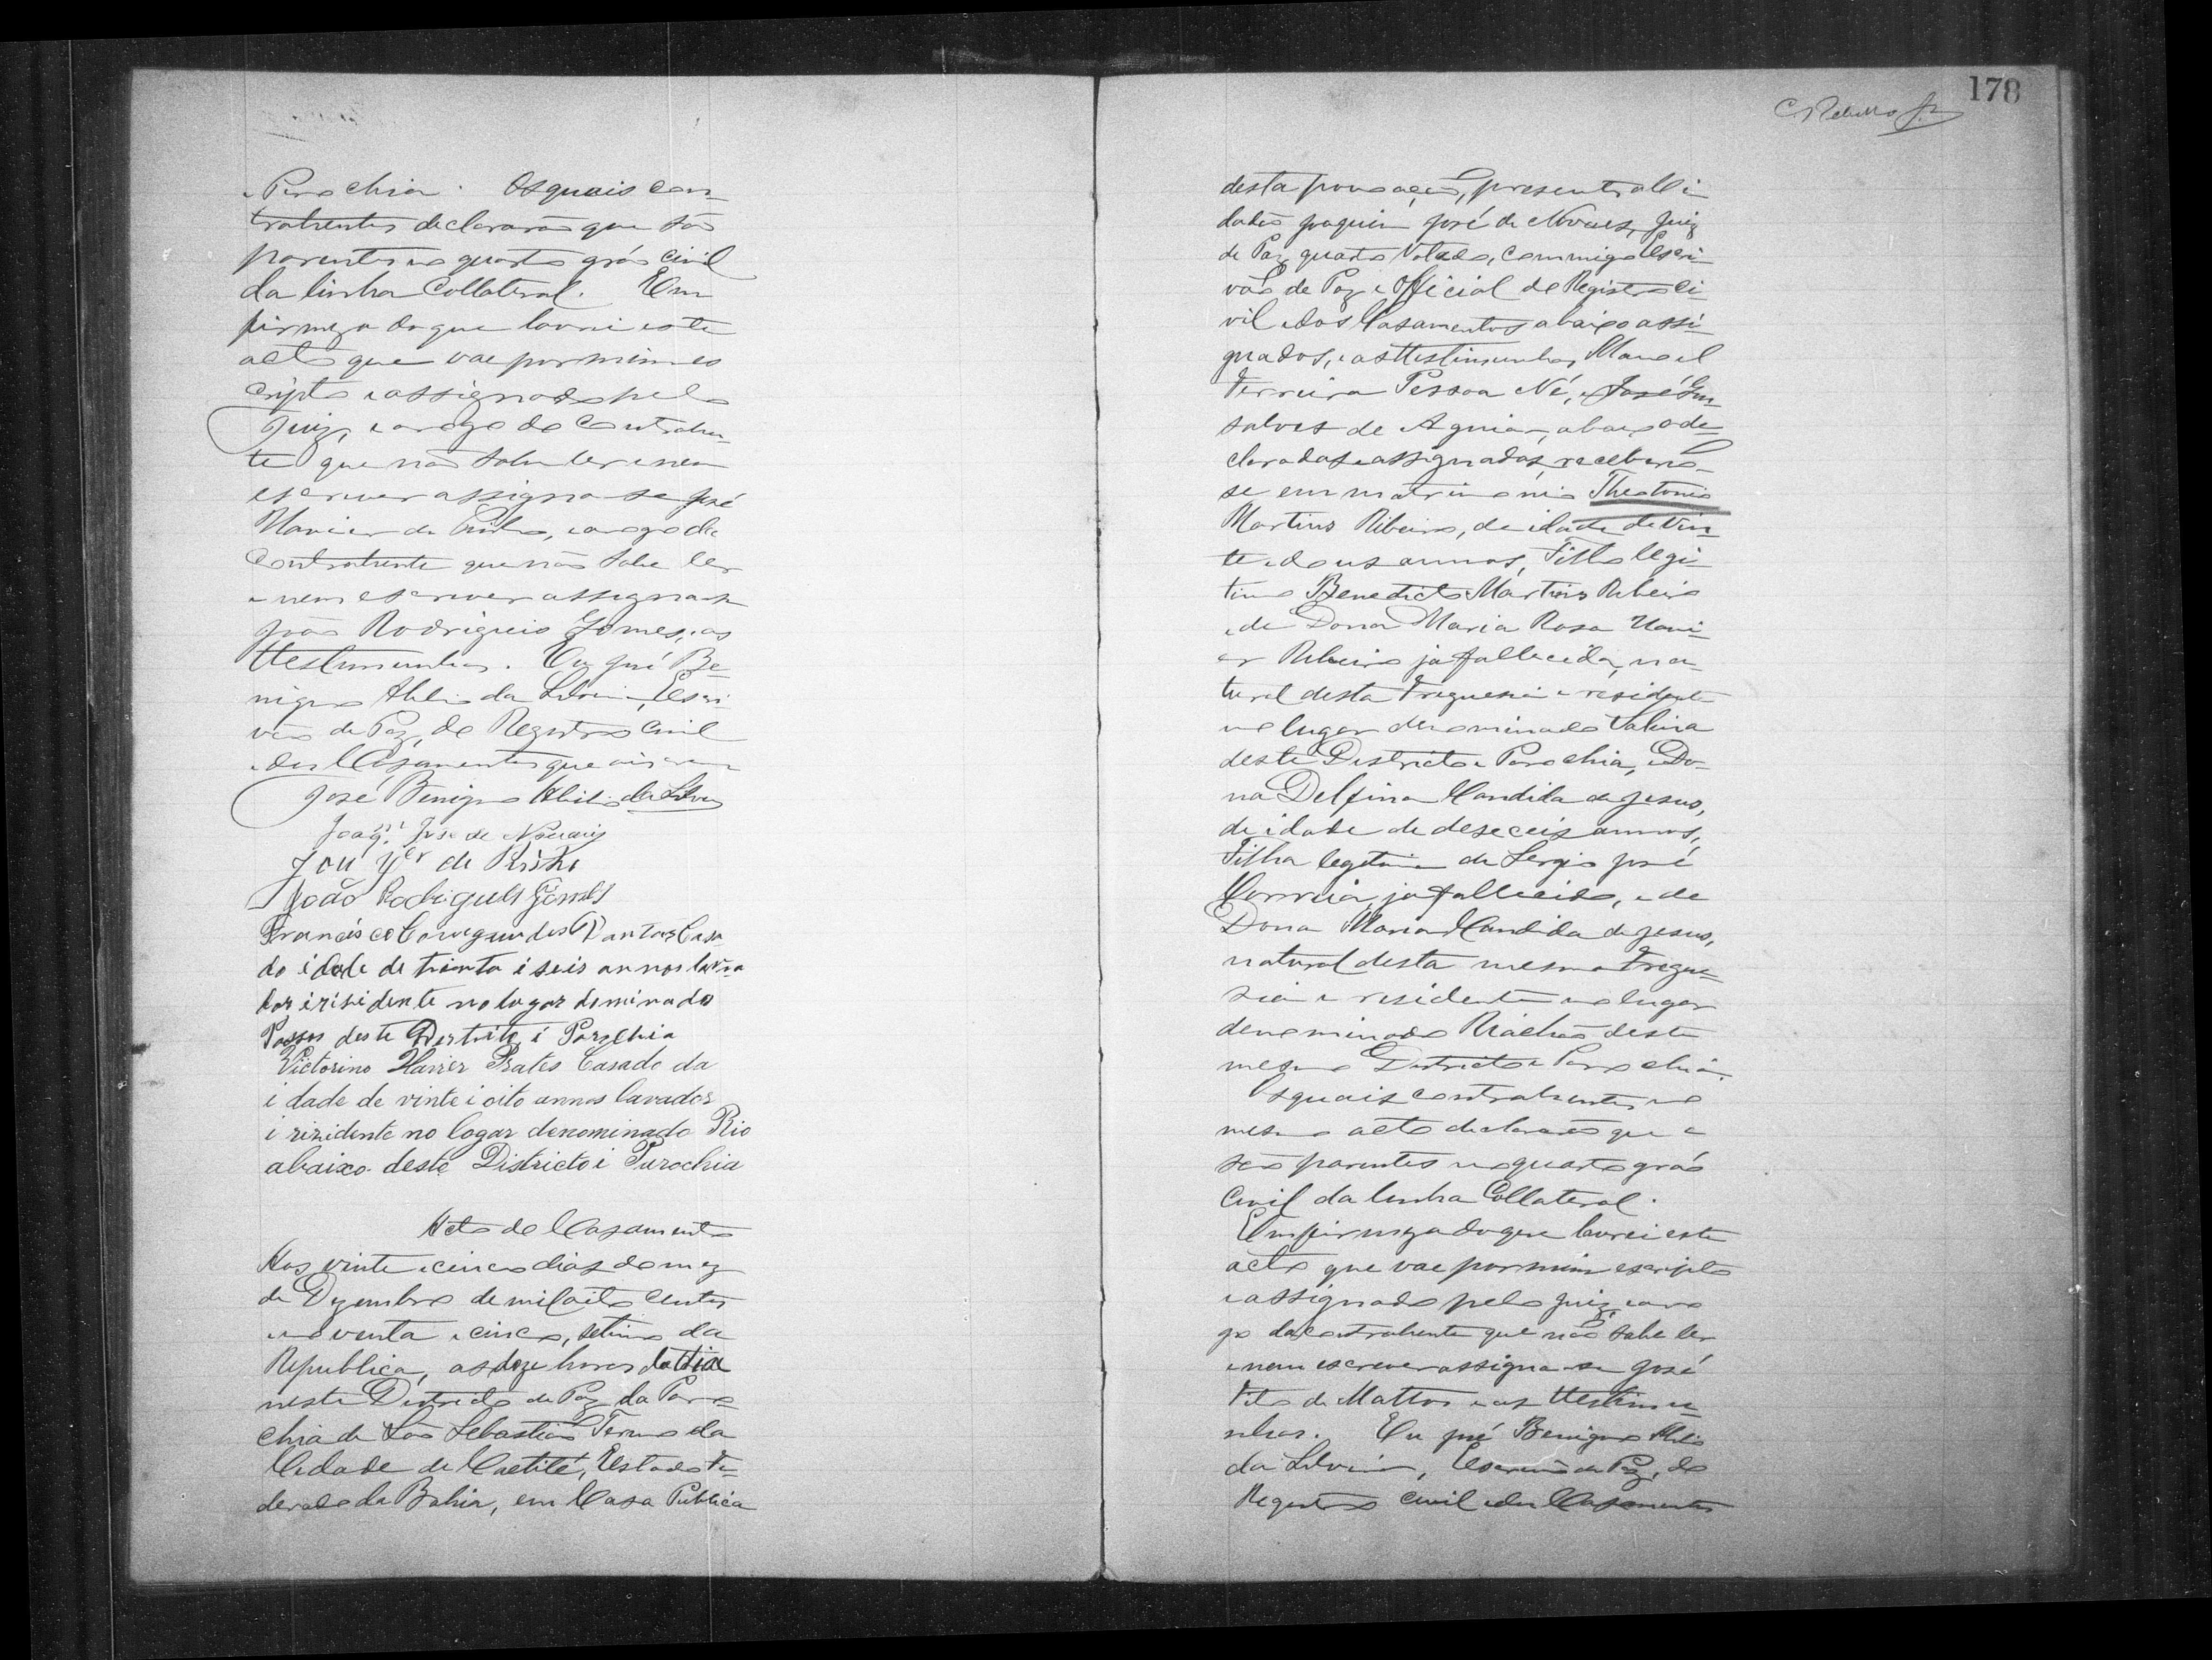 Parochia. Os quais con-
trahentes declararão que são
parentes no quarto gráo civil
da linha Collateral. Em
firmeza do que lavrei este
acto que vae por mim es
cripto e assignado pelo
Juiz, e a rogo do Contrahen-
te que não sabe ler e nem
escrever assigna-se José
Xavier de, e a rogo da
Contrahente que não sabe ler
e nem escrever assigna-se
João Rodrigues Gomes, e as
ttestimunhas. Eu José Be-
nigno Abilio da Silveira, Escri-
vão de Paz, do Registro Civil
e dos Casamentos que escrevi
José Benigno Abilio da Silvra
Joaqm José de Novaes
João Rodrigues Gomes
Francisco Dantas Casa
do idade de trienta i seis annos lavra
dor i risidente no lugar deminado
Passos deste Destrito i Parochia
Victorino Xavier Prates Casado da
idade de vinte i oito annos lavador
i rizidente no logar denomenado Rio
abaixo deste Districto i Parochia
Acto de Casamento
Aos vinte e cinco dias do mez
de Dezembro de mil oito centos
e noventa e cinco, setimo da
Republica, as doze horas do dia
neste Districto de Paz da Paro
chia de São Sebastião Termo da
Cidade de Caetité, Estado Fe-
derado da Bahia, em Casa Publica
178
desta povoação, presente alli
dadão Joaquim José de Novaes, Juiz
de Paz quarto Votado, commigo Escri-
vão de Paz e Official de Registro Ci-
vil e dos Casamentos abaixo assi-
gnados, e as ttestimunhas, Manoel
Ferreira Pessoa Né, e José Gon-
salves de Aguiar, abaixo de-
clarados e assignados, receberão-
se em matrimonio Theotonio
Martins Ribeiro, de idade de vin-
te e dous annos, Filho legi-
timo Benedicto Martins Ribeiro
e de Dona Maria Rosa Xavi-
er Ribeiro já fallecida, na-
tural desta Freguesia e residente
no lugar denominado Salina
deste Destricto e Parochia, e Do-
na Delfina Candida de Jesus,
de idade de deseceis annos,
Filha legitima de Sergio José
Correia, já fallecido, e de
Dona Maria Candida de Jesus,
natural desta mesma Fregue-
sia e residente no lugar
denominado Riachão deste
mesmo Districto e Parochia.
Os quais contrahentes no
mesmo acto declararão que
são parentes no quarto gráo
Civil da linha Collateral.
Em firmeza do que lavrei este
acto que vae por mim escripto
e assignado pelo Juiz, e a ro
go da contrahente que não sabe ler
e nem escrever assigna-se José
Tito de Mattos e as ttestimu-
nhas. Eu José Benigno Abilio
da Silveira, Escrivão de Paz, do
Registro Civil e dos Casamentos